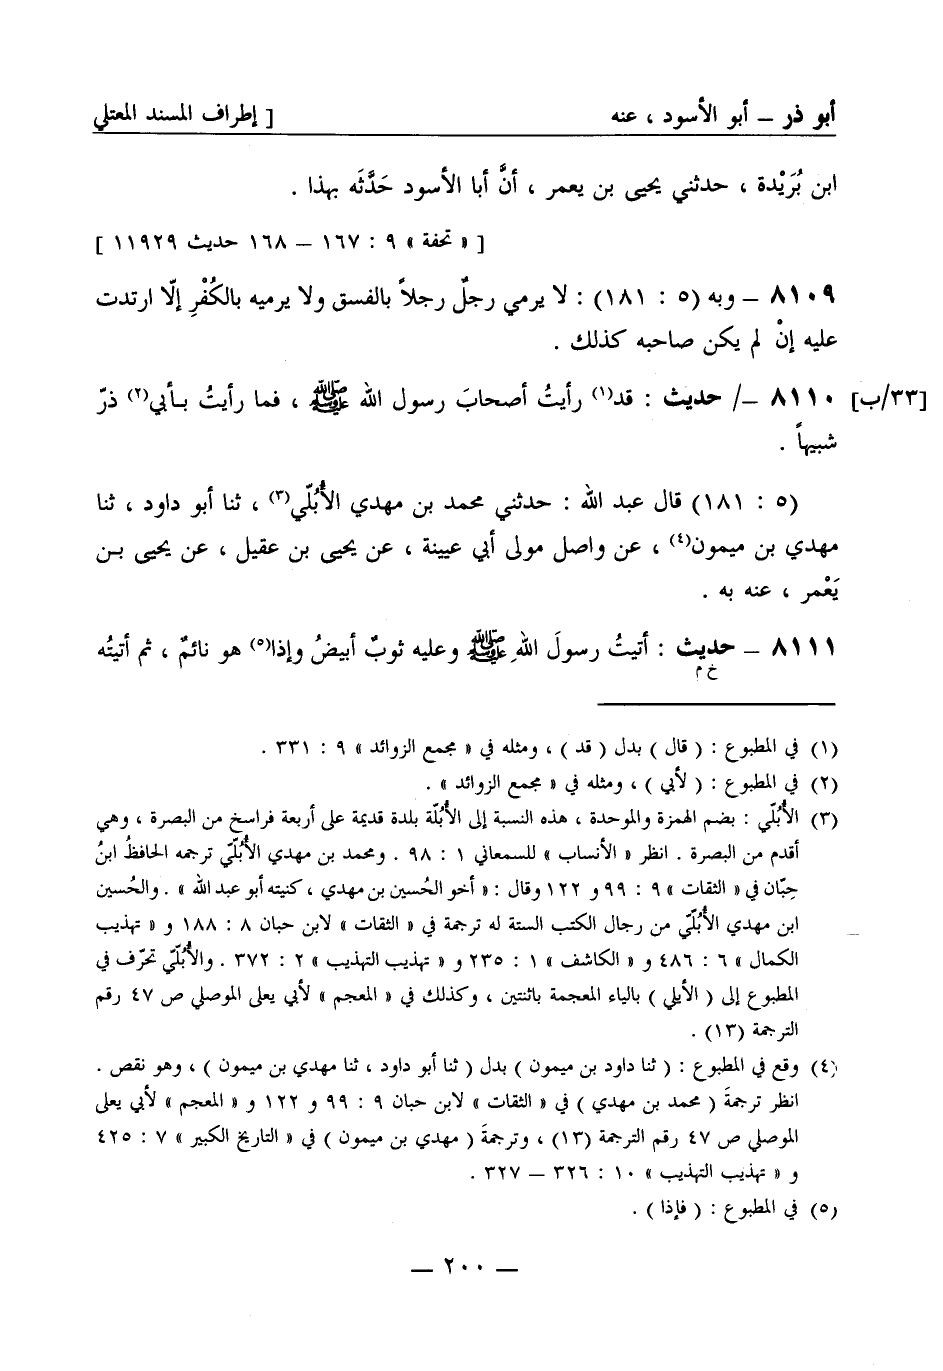 أبو ذر – أبو الأسود ، عنه [ إطراف المسند المعتلي
ابن بُرَيْدة ، حدثني يحيى بن يعمر ، أنَّ أبا الأسود حَدَّثَه بهذا .
[ « تحفة » ٩ : ١٦٧ – ١٦٨ حديث ١١٩٢٩ ]
٨١٠٩ – وبه (٥ : ١٨١) : لا يرمي رجلٌ رجلاً بالفسق ولا يرميه بالكُفْرِ إلّا ارتدت
عليه إنْ لم يكن صاحبه كذلك .
[٣٣/ب] ٨١١٠ –/ حديث : قد(١) رأيتُ أصحابَ رسول الله ﷺ ، فما رأيتُ بـأبي(٢) ذرّ
شبيهاً .
(٥ : ١٨١) قال عبد الله : حدثني محمد بن مهدي الأُبُلّي(٣) ، ثنا أبو داود ، ثنا
مهدي بن ميمون(٤) ، عن واصل مولى أبي عيينة ، عن يحيى بن عقيل ، عن يحيى بـن
يَعْمر ، عنه به .
٨١١١ – حديث : أتيتُ رسولَ اللهِ ﷺ وعليه ثوبٌ أبيضُ وإذا(٥) هو نائمٌ ، ثم أتيتُه
خ م
(١) في المطبوع : ( قال ) بدل ( قد ) ، ومثله في « مجمع الزوائد » ٩ : ٣٣١ .
(٢) في المطبوع : ( لأبي ) ، ومثله في « مجمع الزوائد » .
(٣) الأُبُلّي : بضم الهمزة والموحدة ، هذه النسبة إلى الأُبُلّة بلدة قديمة على أربعة فراسخ من البصرة ، وهي
أقدم من البصرة . انظر « الأنساب » للسمعاني ١ : ٩٨ . ومحمد بن مهدي الأُبُلّي ترجمه الحافظُ ابنُ
حِبّان في « الثقات » ٩ : ٩٩ و ١٢٢ وقال : « أخو الحُسين بن مهدي ، كنيته أبو عبد الله » . والحُسين
ابن مهدي الأُبُلّي من رجال الكتب الستة له ترجمة في « الثقات » لابن حبان ٨ : ١٨٨ و « تهذيب
الكمال » ٦ : ٤٨٦ و « الكاشف » ١ : ٢٣٥ و « تهذيب التهذيب » ٢ : ٣٧٢ . والأُبُلّي تحرّف في
المطبوع إلى ( الأيلي ) بالياء المعجمة باثنتين ، وكذلك في « المعجم » لأبي يعلى الموصلي ص ٤٧ رقم
الترجمة (١٣) .
(٤) وقع في المطبوع : ( ثنا داود بن ميمون ) بدل ( ثنا أبو داود ، ثنا مهدي بن ميمون ) ، وهو نقص .
انظر ترجمةَ ( محمد بن مهدي ) في « الثقات » لابن حبان ٩ : ٩٩ و ١٢٢ و « المعجم » لأبي يعلى
الموصلي ص ٤٧ رقم الترجمة (١٣) ، وترجمةَ ( مهدي بن ميمون ) في « التاريخ الكبير » ٧ : ٤٢٥
و « تهذيب التهذيب » ١٠ : ٣٢٦ – ٣٢٧ .
(٥) في المطبوع : ( فإذا ) .
– ٢٠٠ –